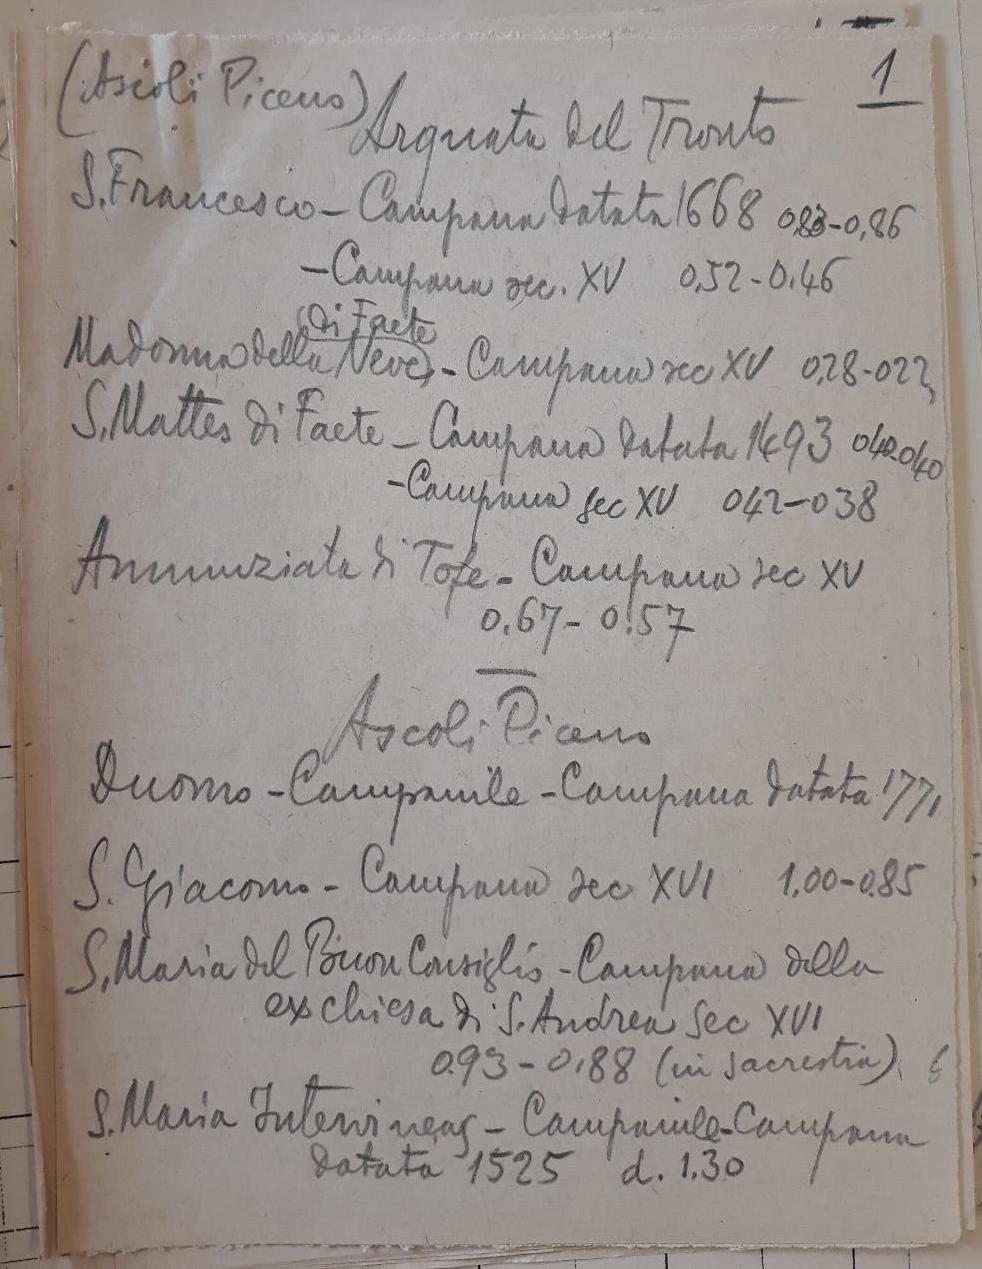 1
(Ascoli Piceno)
Arquata del Tronto
S. Francesco - Campana datata 1668 0,83-0,86
- Campana sec. XV 0,52-0,46
(di Faete
Madonna della Neve) - Campana sec XV 0,28-022
S. Matteo di Faete - Campana datata 1493 040-040
- Campana sec XV 042-038
Annunziata di Tofe - Campana sec XV
0.67-0.57
Ascoli Piceno
Duomo - Campanile - Campana datata 1771
S. Giacomo - Campana sec XVI 1.00-0.85
S. Maria del Buon Consiglio - Campana della
ex chiesa di S. Andrea sec XVI
0.93-0.88 (in sacrestia)
S. Maria Intervineas - Campanile - Campana
datata 1525 d. 1.30